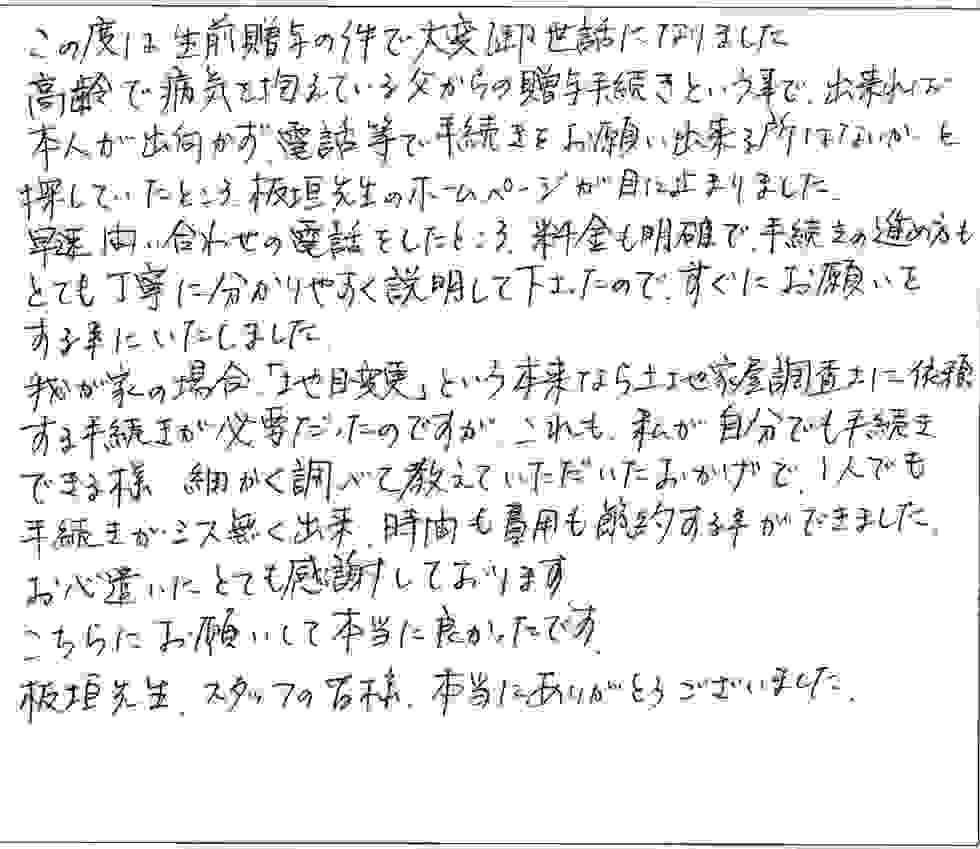 この度は生前贈与の件で大変御世話になりました
高齢で病気を抱えている父からの贈与手続きという事で、出来れば
本人が出向かず、電話等で手続きをお願い出来る所はないか、と
探していたところ、板垣先生のホームページが目に止まりました。
早速問い合わせの電話をしたところ、料金も明確で、手続きの進め方も
とても丁寧に分かりやすく説明して下さったので、すぐにお願いを
する事にいたしました。
我が家の場合、「地目変更」という本来なら土地家屋調査士に依頼
する手続きが必要だったのですが、これも、私が自分でも手続き
できる様、細かく調べて教えていただいたおかげで、1人でも
手続きがミス無く出来、時間も費用も節約する事ができました。
お心遣いにとても感謝しております
こちらにお願いして本当に良かったです。
板垣先生、スタッフの皆様、本当にありがとうございました。